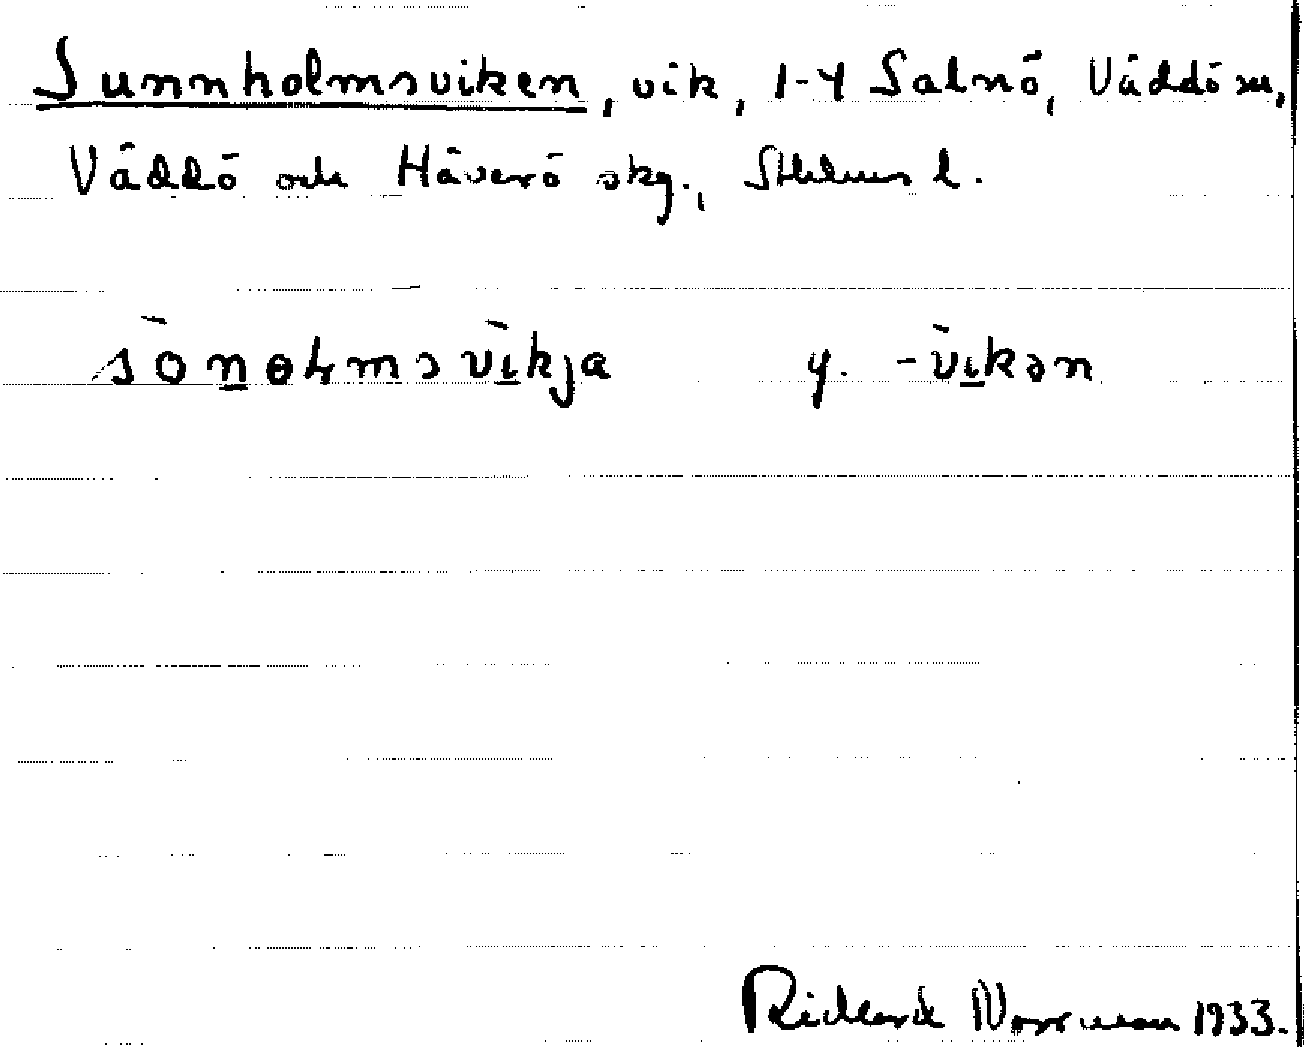 Sunnholmsviken, vik, 1-4 Salnö, Väddö sn,
Väddö och Häverö skg., Sthlms l.
sònolmsvìkja y. -vìkən
Richard Norrman 1933.